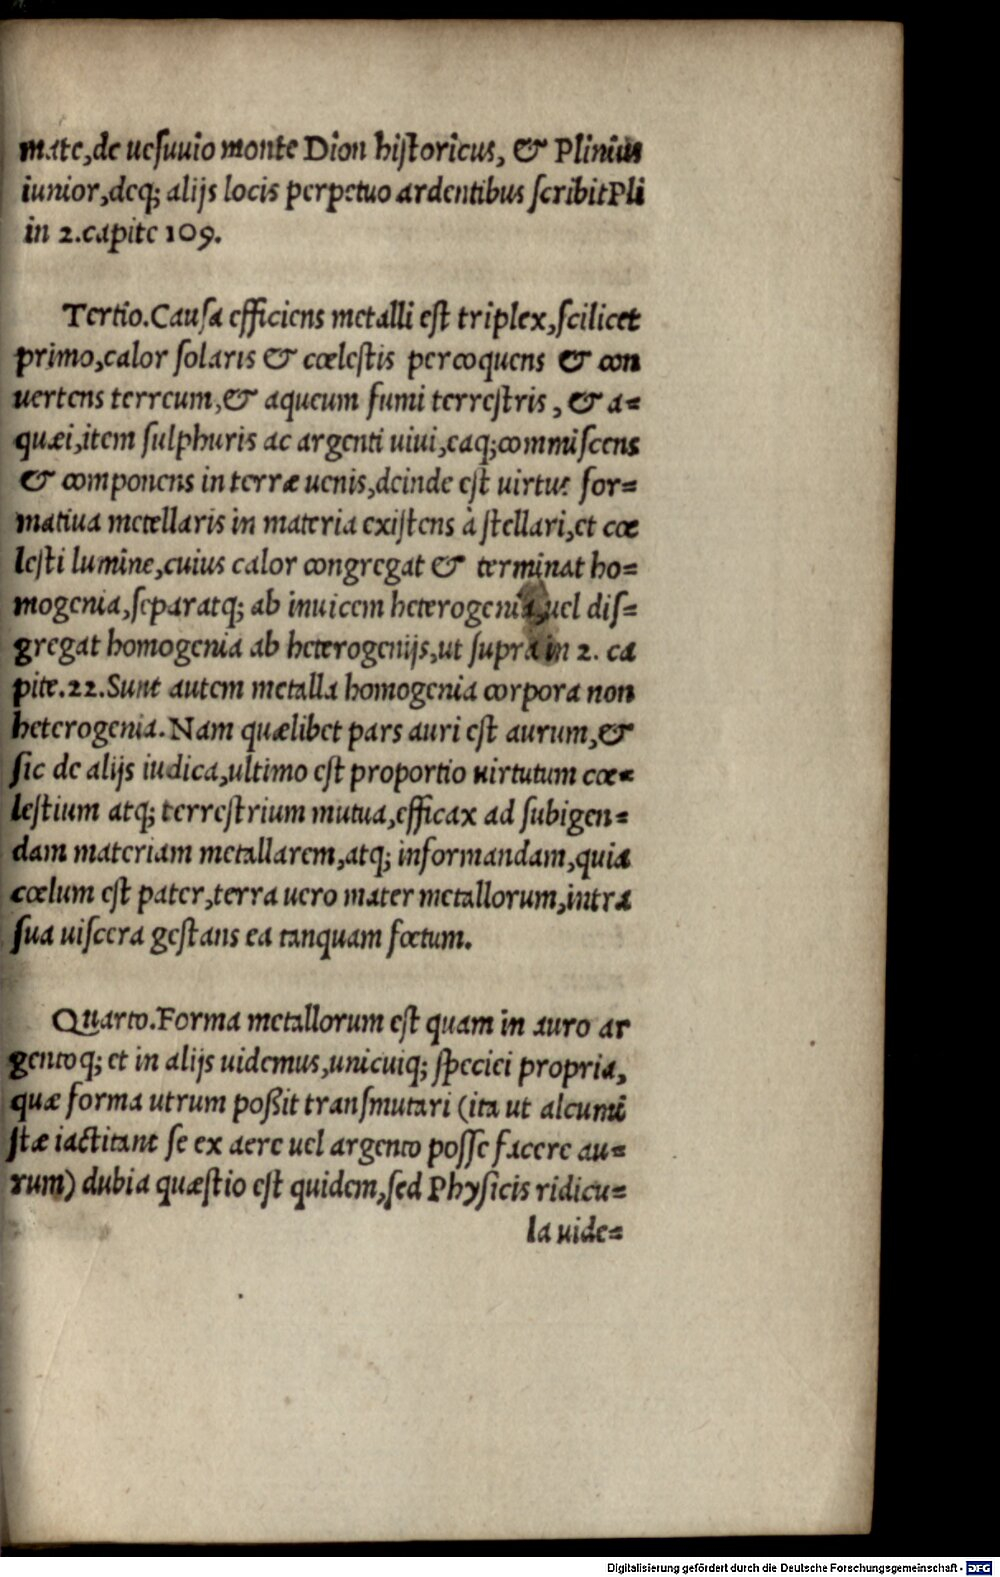 mate,de uesuuio monte Dion historicus, & Plinius
iunior,deq; alijs locis perpetuo ardentibus scribit Pli
in 2.capite 109.
Tertio.Causa efficiens metalli est triplex,scilicet
primo,calor solaris & cœlestis percoquens & con
uertens terreum,& aqueum fumi terrestris, & a=
quæi,item sulphuris ac argenti uiui,eaq;commiscens
& componens in terræ uenis,deinde est uirtus for=
matiua metellaris in materia existens à stellari,et cœ
lesti lumine,cuius calor congregat & terminat ho=
mogenia,separatq; ab inuicem heterogenia,uel dis=
gregat homogenia ab heterogenijs,ut supra in 2. ca
pite.22.Sunt autem metalla homogenia corpora non
heterogenia.Nam quælibet pars auri est aurum,&
sic de alijs iudica,ultimo est proportio uirtutum cœ=
lestium atq; terrestrium mutua,efficax ad subigen=
dam materiam metallarem,atq; informandam,quia
cœlum est pater,terra uero mater metallorum,intra
sua uiscera gestans ea tanquam fœtum.
Quarto.Forma metallorum est quam in auro ar
gentoq; et in alijs uidemus,unicuiq; speciei propria,
quæ forma utrum poßit transmutari (ita ut alcumi
stæ iactitant se ex aere uel argento posse facere au=
rum) dubia quæstio est quidem,sed Physicis ridicu=
la uide=
Digitalisierung gefördert durch die Deutsche Forschungsgemeinschaft - DFG